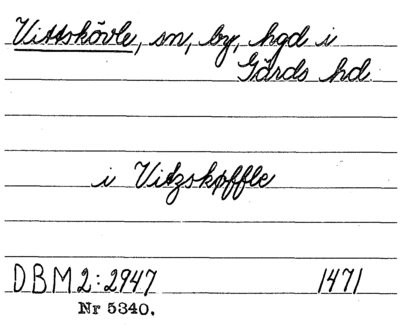 Vittskövle, sn, by, hgd i
Gärds hd.
i Vitzskøffle
DBM 2:2947 1471
Nr 5340.